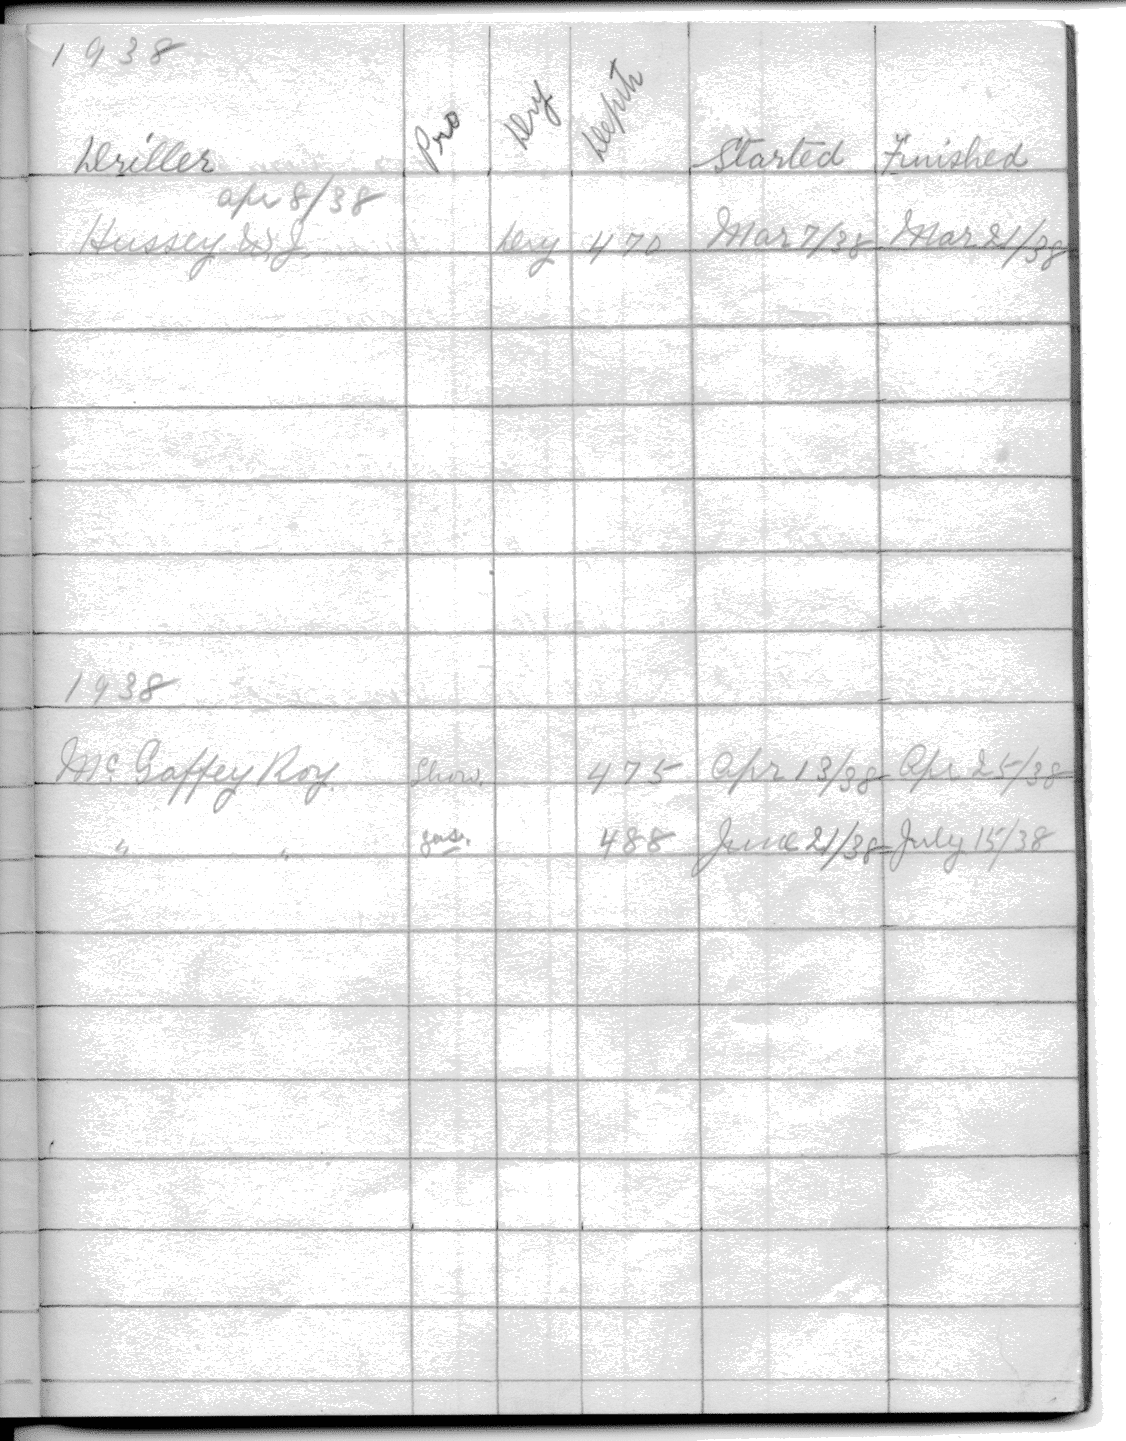 1938
Driller Pro Dry Depth Started Finished
apr 8/38
Hussey W.J. Dry 470 Mar 7/38 Mar 21/38
1938
Mc Gaffey Roy. Show. 475 Apr 13/38 Apr 25/38
" " gas. 488 June 21/38 July 15/38